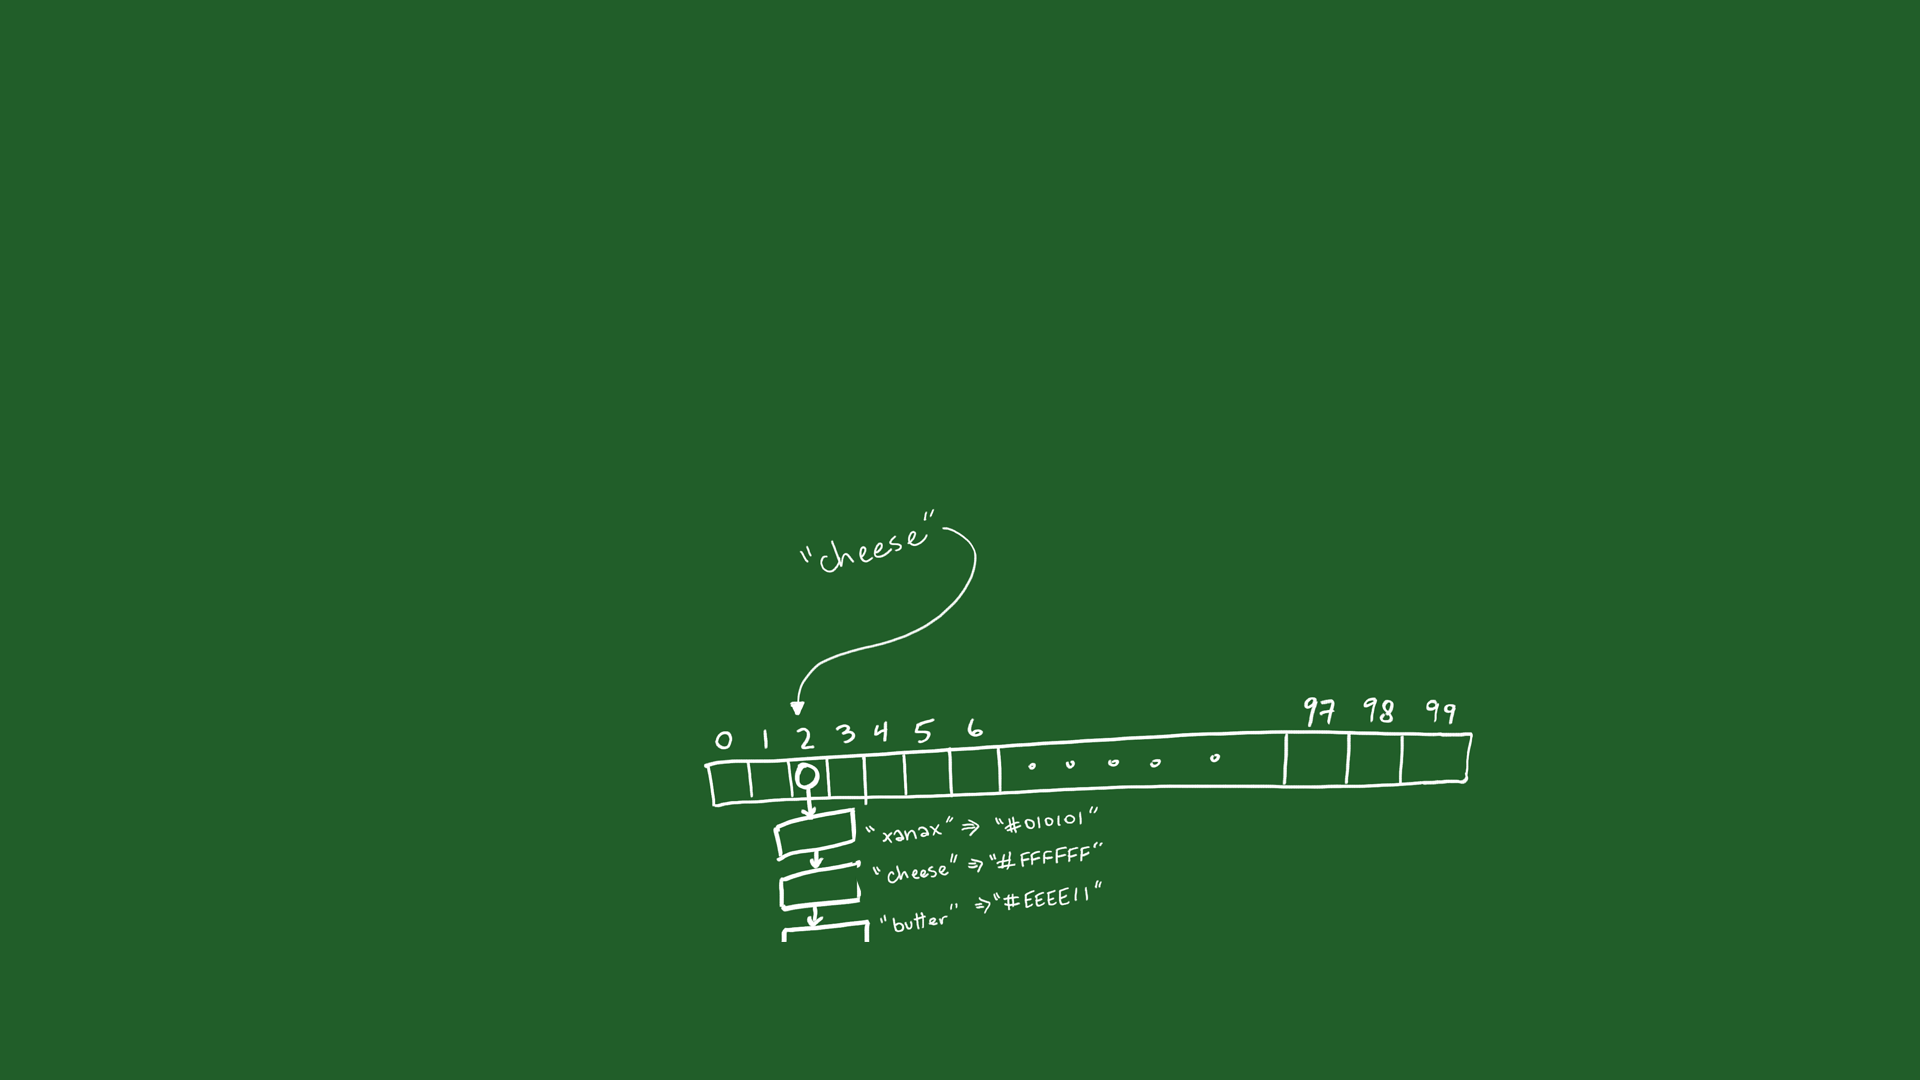 "cheese"
0 1 2 3 4 5 6 97 98 99
"xanax" ⇒ "#010101"
"cheese" ⇒ "#FFFFFF"
"butter" ⇒ "#EEEE11"